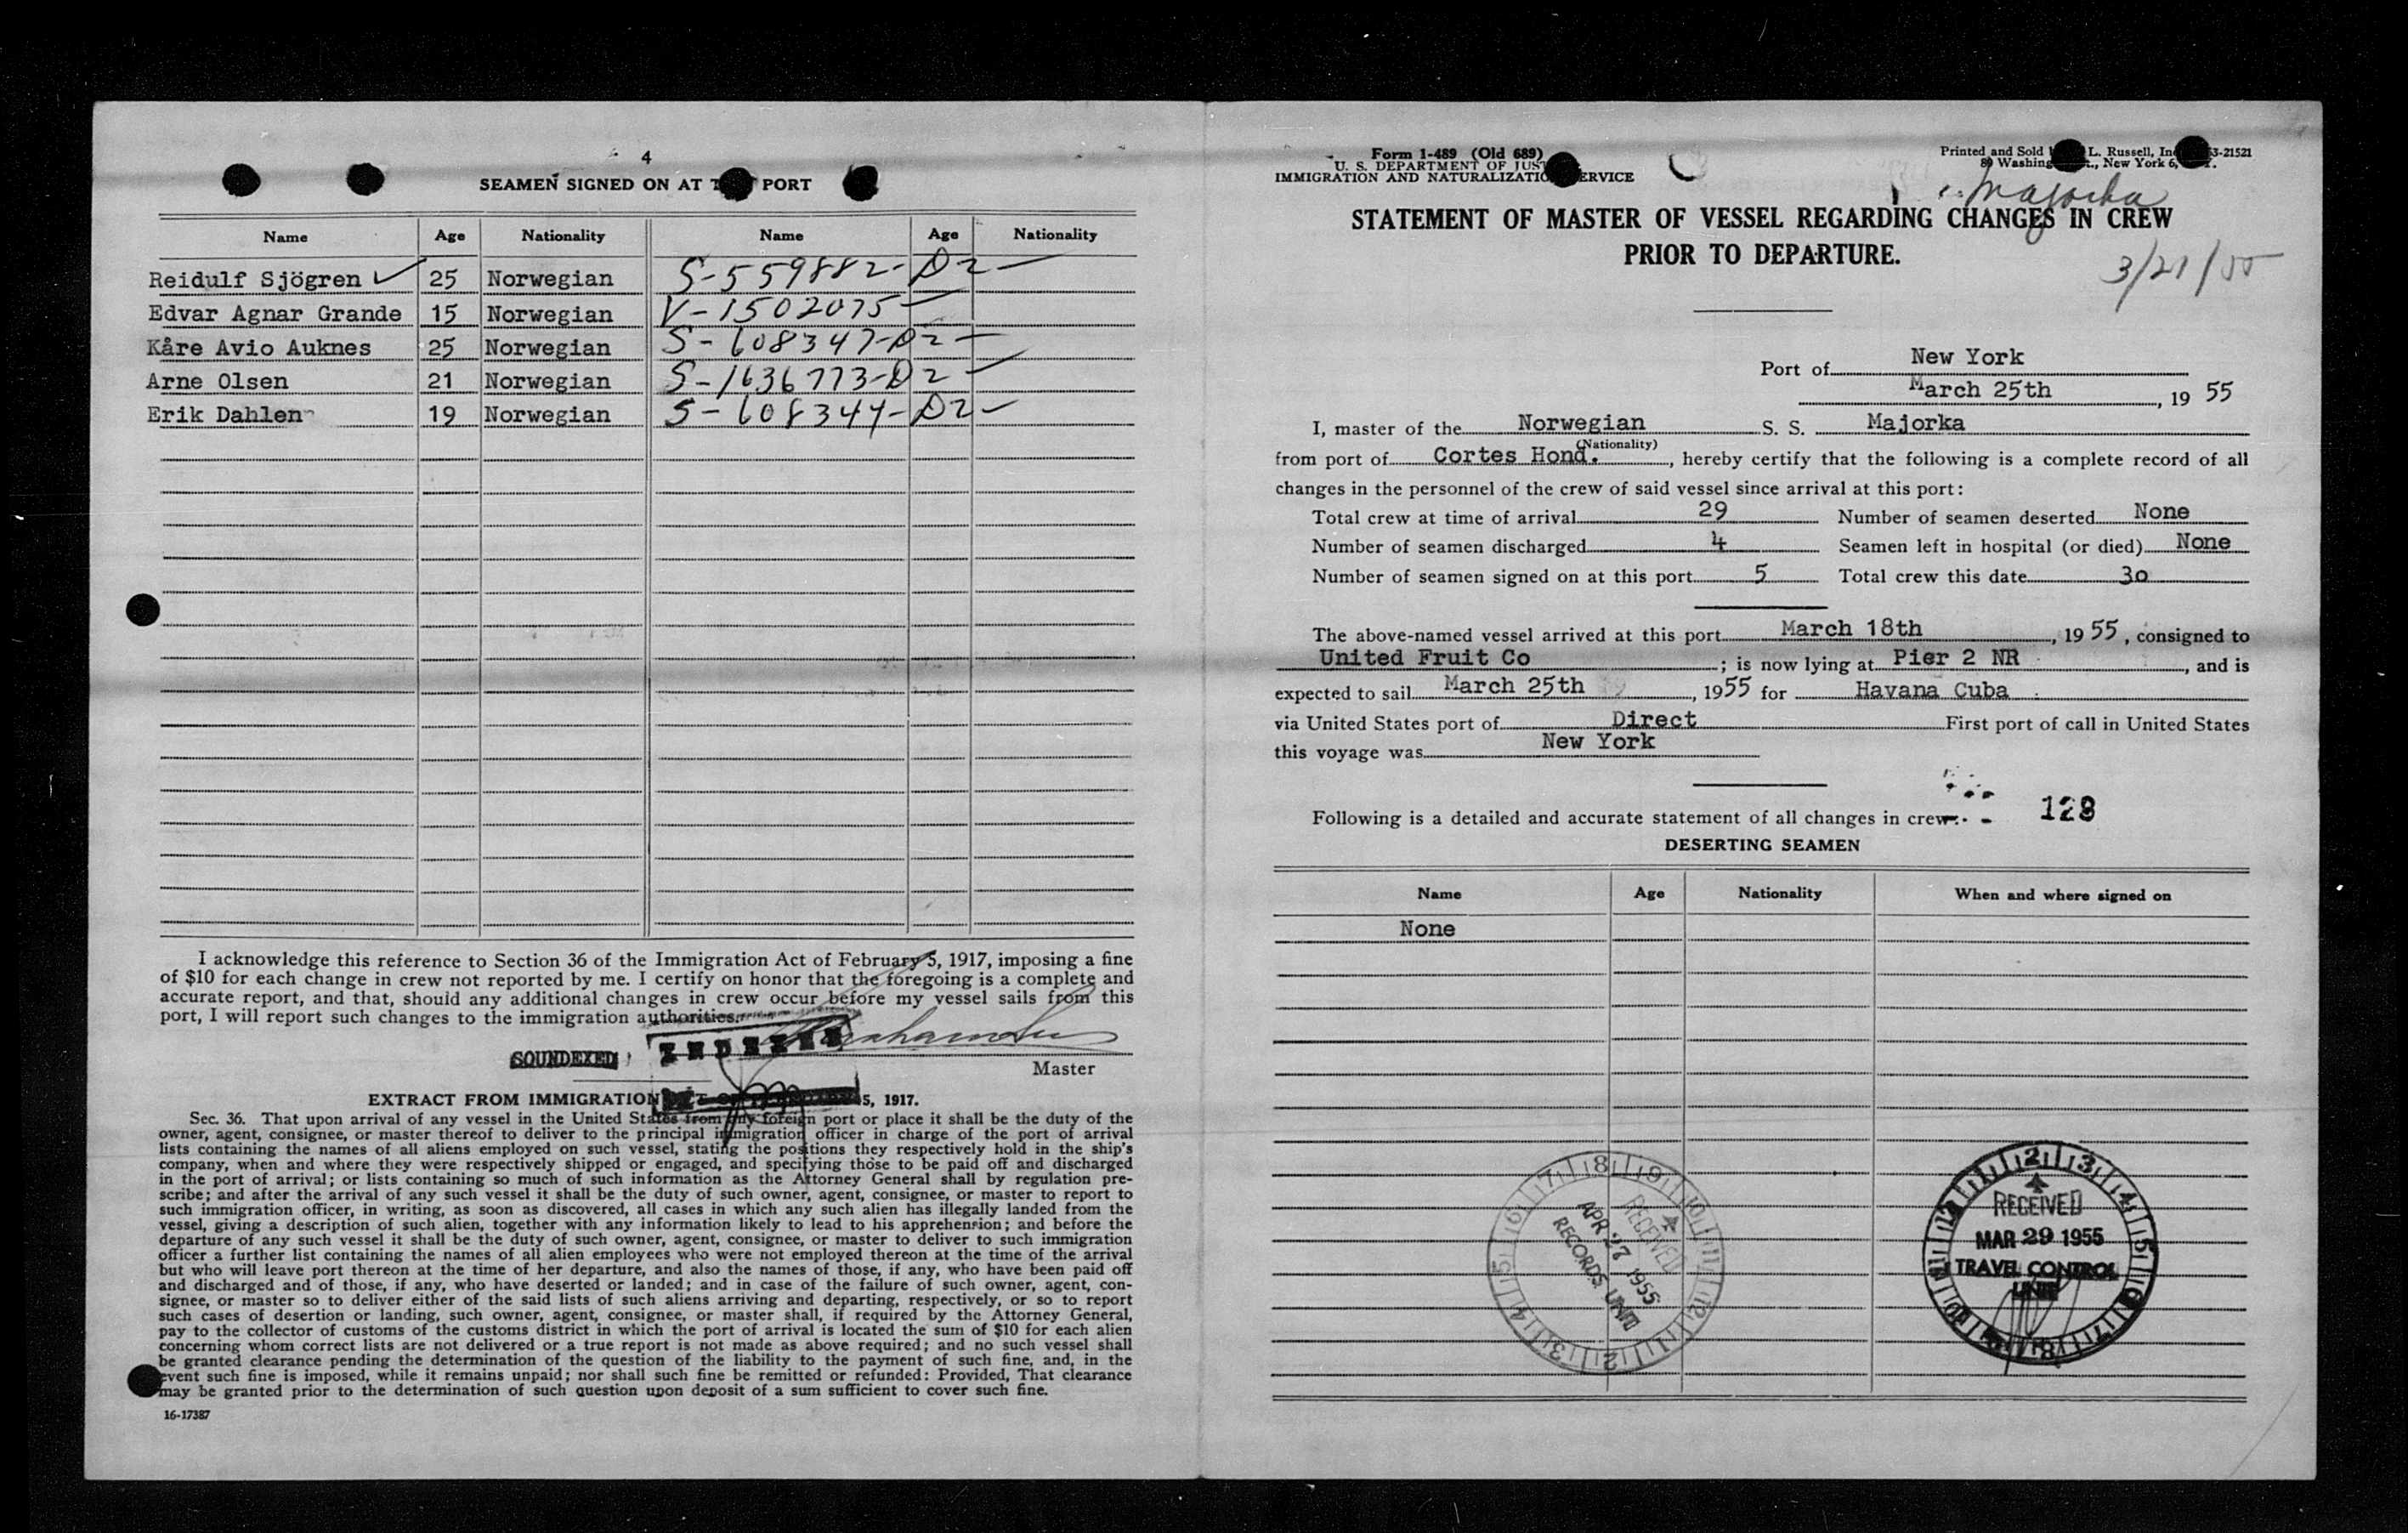 4
SEAMEN SIGNED ON AT PORT
Name Age Nationality Name Age Nationality
Reidulf Sjögren 25 Norwegian S-559882-D2
Edvar Agnar Grande 15 Norwegian V-1502075
Kåre Avio Auknes 25 Norwegian S-608347-D2
Arne Olsen 21 Norwegian S-1636773-D2
Erik Dahlen 19 Norwegian S-608344-D2
I acknowledge this reference to Section 36 of the Immigration Act of February 5, 1917, imposing a fine
of $10 for each change in crew not reported by me. I certify on honor that the foregoing is a complete and
accurate report, and that, should any additional changes in crew occur before my vessel sails from this
port, I will report such changes to the immigration authorities.
SOUNDEXED
Master
EXTRACT FROM IMMIGRATION 5, 1917.
Sec. 36. That upon arrival of any vessel in the United States from any foreign port or place it shall be the duty of the
owner, agent, consignee, or master thereof to deliver to the principal immigration officer in charge of the port of arrival
lists containing the names of all aliens employed on such vessel, stating the positions they respectively hold in the ship's
company, when and where they were respectively shipped or engaged, and specifying those to be paid off and discharged
in the port of arrival; or lists containing so much of such information as the Attorney General shall by regulation pre-
scribe; and after the arrival of any such vessel it shall be the duty of such owner, agent, consignee, or master to report to
such immigration officer, in writing, as soon as discovered, all cases in which any such alien has illegally landed from the
vessel, giving a description of such alien, together with any information likely to lead to his apprehension; and before the
departure of any such vessel it shall be the duty of such owner, agent, consignee, or master to deliver to such immigration
officer a further list containing the names of all alien employees who were not employed thereon at the time of the arrival
but who will leave port thereon at the time of her departure, and also the names of those, if any, who have been paid off
and discharged and of those, if any, who have deserted or landed; and in case of the failure of such owner, agent, con-
signee, or master so to deliver either of the said lists of such aliens arriving and departing, respectively, or so to report
such cases of desertion or landing, such owner, agent, consignee, or master shall, if required by the Attorney General,
pay to the collector of customs of the customs district in which the port of arrival is located the sum of $10 for each alien
concerning whom correct lists are not delivered or a true report is not made as above required; and no such vessel shall
be granted clearance pending the determination of the question of the liability to the payment of such fine, and, in the
event such fine is imposed, while it remains unpaid; nor shall such fine be remitted or refunded: Provided, That clearance
may be granted prior to the determination of such question upon deposit of a sum sufficient to cover such fine.
16-17387
Form 1-489 (Old 689)
U. S. DEPARTMENT OF JUST
IMMIGRATION AND NATURALIZATIO ERVICE
Printed and Sold L. Russell, In 3-21521
80 Washing t., New York 6,
Majorka
STATEMENT OF MASTER OF VESSEL REGARDING CHANGES IN CREW
PRIOR TO DEPARTURE.
3/21/55
Port of New York
March 25th, 19 55
I, master of the Norwegian S. S. Majorka
(Nationality)
from port of Cortes Hond., hereby certify that the following is a complete record of all
changes in the personnel of the crew of said vessel since arrival at this port:
Total crew at time of arrival 29 Number of seamen deserted None
Number of seamen discharged 4 Seamen left in hospital (or died) None
Number of seamen signed on at this port 5 Total crew this date 30
The above-named vessel arrived at this port March 18th, 19 55, consigned to
United Fruit Co; is now lying at Pier 2 NR, and is
expected to sail March 25th, 1955 for Havana Cuba
via United States port of Direct First port of call in United States
this voyage was New York
Following is a detailed and accurate statement of all changes in crew:
128
DESERTING SEAMEN
Name Age Nationality When and where signed on
None
RECEIVED
APR 27 1955
RECORDS UNIT
RECEIVED
MAR 29 1955
TRAVEL CONTROL
UNIT